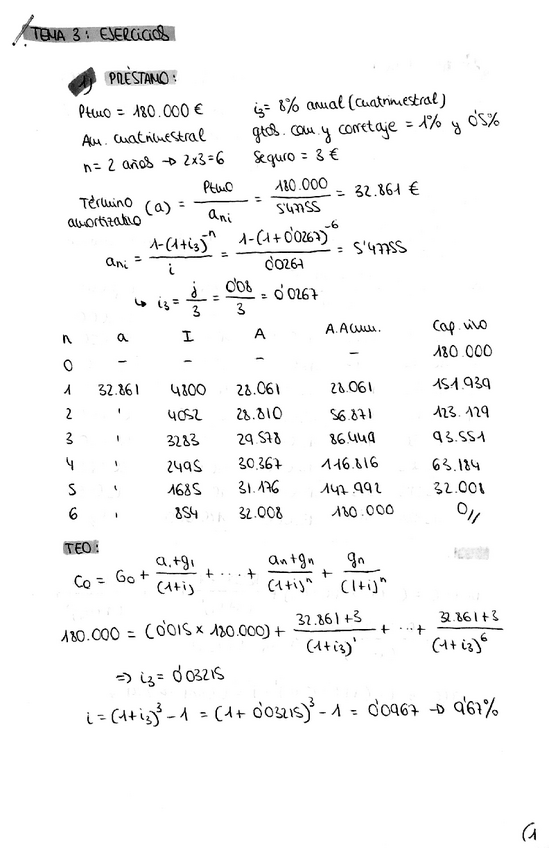 TEMA 3: EJERCICIOS
1) PRÉSTAMO:
Ptmo = 180.000 €
i₃= 8% anual (cuatrimestral)
Am. cuatrimestral
gtos. com. y corretaje = 1% y 0'5%
n = 2 años → 2x3=6
Seguro = 3 €
Término amortizativo (a) = Ptmo / ani = 180.000 / 5'4755 = 32.861 €
ani = 1-(1+i₃)^-n / i = 1-(1+0'0267)^-6 / 0'0267 = 5'4755
↳ i₃ = j/3 = 0'08/3 = 0'0267
n a I A A.Acum. Cap. vivo
0 - - - - 180.000
1 32.861 4800 28.061 28.061 151.939
2 ' 4052 28.810 56.871 123.129
3 ' 3283 29578 86.449 93.551
4 ' 2495 30.367 116.816 63.184
5 ' 1685 31.176 147.992 32.008
6 ' 854 32.008 180.000 0//
TEO:
C₀ = G₀ + a₁+g₁ / (1+i) + ... + an+gn / (1+i)^n + gn / (1+i)^n
180.000 = (0'015 x 180.000) + 32.861+3 / (1+i₃)^1 + ... + 32.861+3 / (1+i₃)^6
⇒ i₃ = 0'03215
i = (1+i₃)^3 - 1 = (1+0'03215)^3 - 1 = 0'0967 → 9'67%
(1